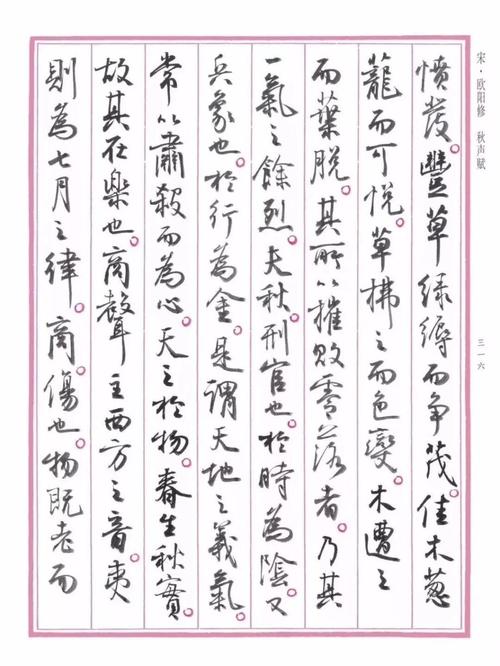 宋·欧阳修 秋声赋
三一六
憤發。豐草绿缛而争茂。佳木葱
蘢而可悦。草拂之而色變。木遭之
而葉脱。其所以摧败零落者乃其
一氣之餘烈。夫秋刑官也。於時為陰。又
兵象也。於行為金。是謂天地之義氣。
常以肅殺而為心。天之於物。春生秋實。
故其在樂也。商聲主西方之音。夷
則為七月之律。商傷也。物既老而